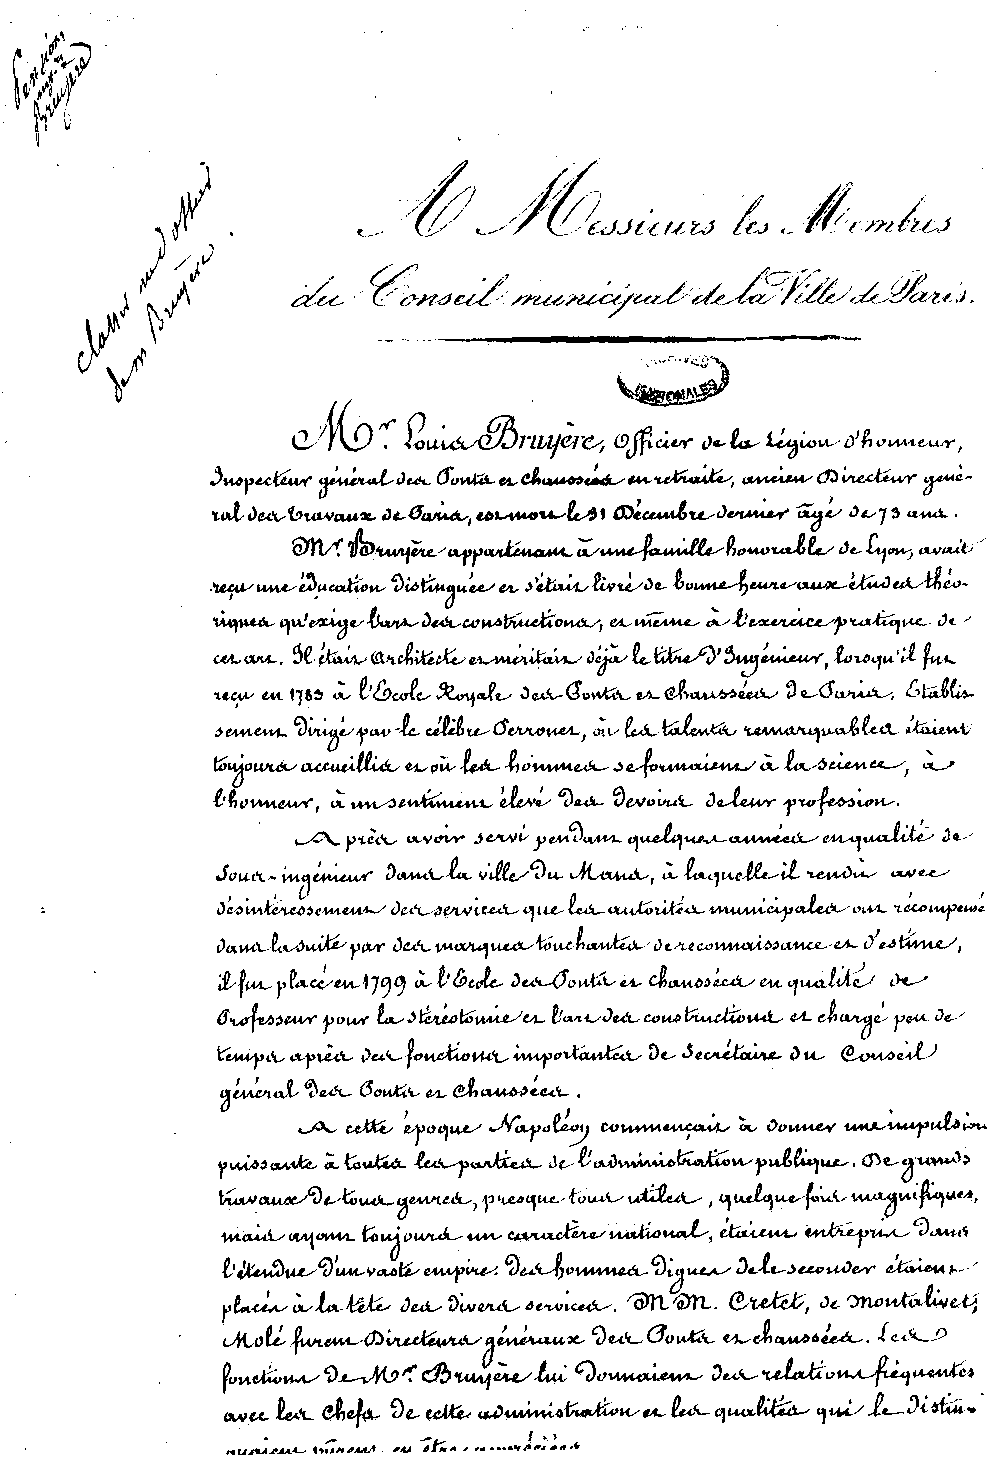 Pension
Bruyère
classer au dossier
de m Bruyère.
A Messieurs les Membres
du Conseil municipal de la Ville de Paris.
NATIONALES
Mr. Louis Bruyère, Officier de la Légion d'honneur,
Inspecteur général des Ponts et chaussées en retraite, ancien Directeur géné-
ral des travaux de Paris, est mort le 31 Décembre dernier âgé de 73 ans.
Mr. Bruyère appartenant à une famille honorable de Lyon, avait
reçu une éducation distinguée et s'était livré de bonne heure aux études théo-
riques qu'exige l'art des constructions, et même à l'exercice pratique de
cet art. Il était Architecte et méritait déjà le titre d'Ingénieur, lorsqu'il fut
reçu en 1783 à l'Ecole Royale des Ponts et chaussées de Paris. Etablis
sement dirigé par le célèbre Perronet, où les talents remarquables étaient
toujours accueillis et où les hommes se formaient à la science, à
l'honneur, à un sentiment élevé des devoirs de leur profession.
Après avoir servi pendant quelques années en qualité de
Sous-ingénieur dans la ville du Mans, à laquelle il rendit avec
désintéressement des services que les autorités municipales ont récompensé
dans la suite par des marques touchantes de reconnaissance et d'estime,
il fut placé en 1799 à l'Ecole des Ponts et chaussées en qualité de
Professeur pour la stéréotomie et l'art des constructions et chargé peu de
temps après des fonctions importantes de Secrétaire du Conseil
général des Ponts et chaussées.
A cette époque Napoléon commençait à donner une impulsion
puissante à toutes les parties de l'administration publique. De grands
travaux de tous genres, presque tous utiles, quelque fois magnifiques,
mais ayant toujours un caractère national, étaient entrepris dans
l'étendue d'un vaste empire. des hommes dignes de le seconder étaient
placés à la tête des divers services. MM. Cretet, de Montalivet,
Molé furent Directeurs généraux des Ponts et chaussées. Les
fonctions de Mr. Bruyère lui donnaient des relations fréquentes
avec les chefs de cette administration et les qualités qui le distin-